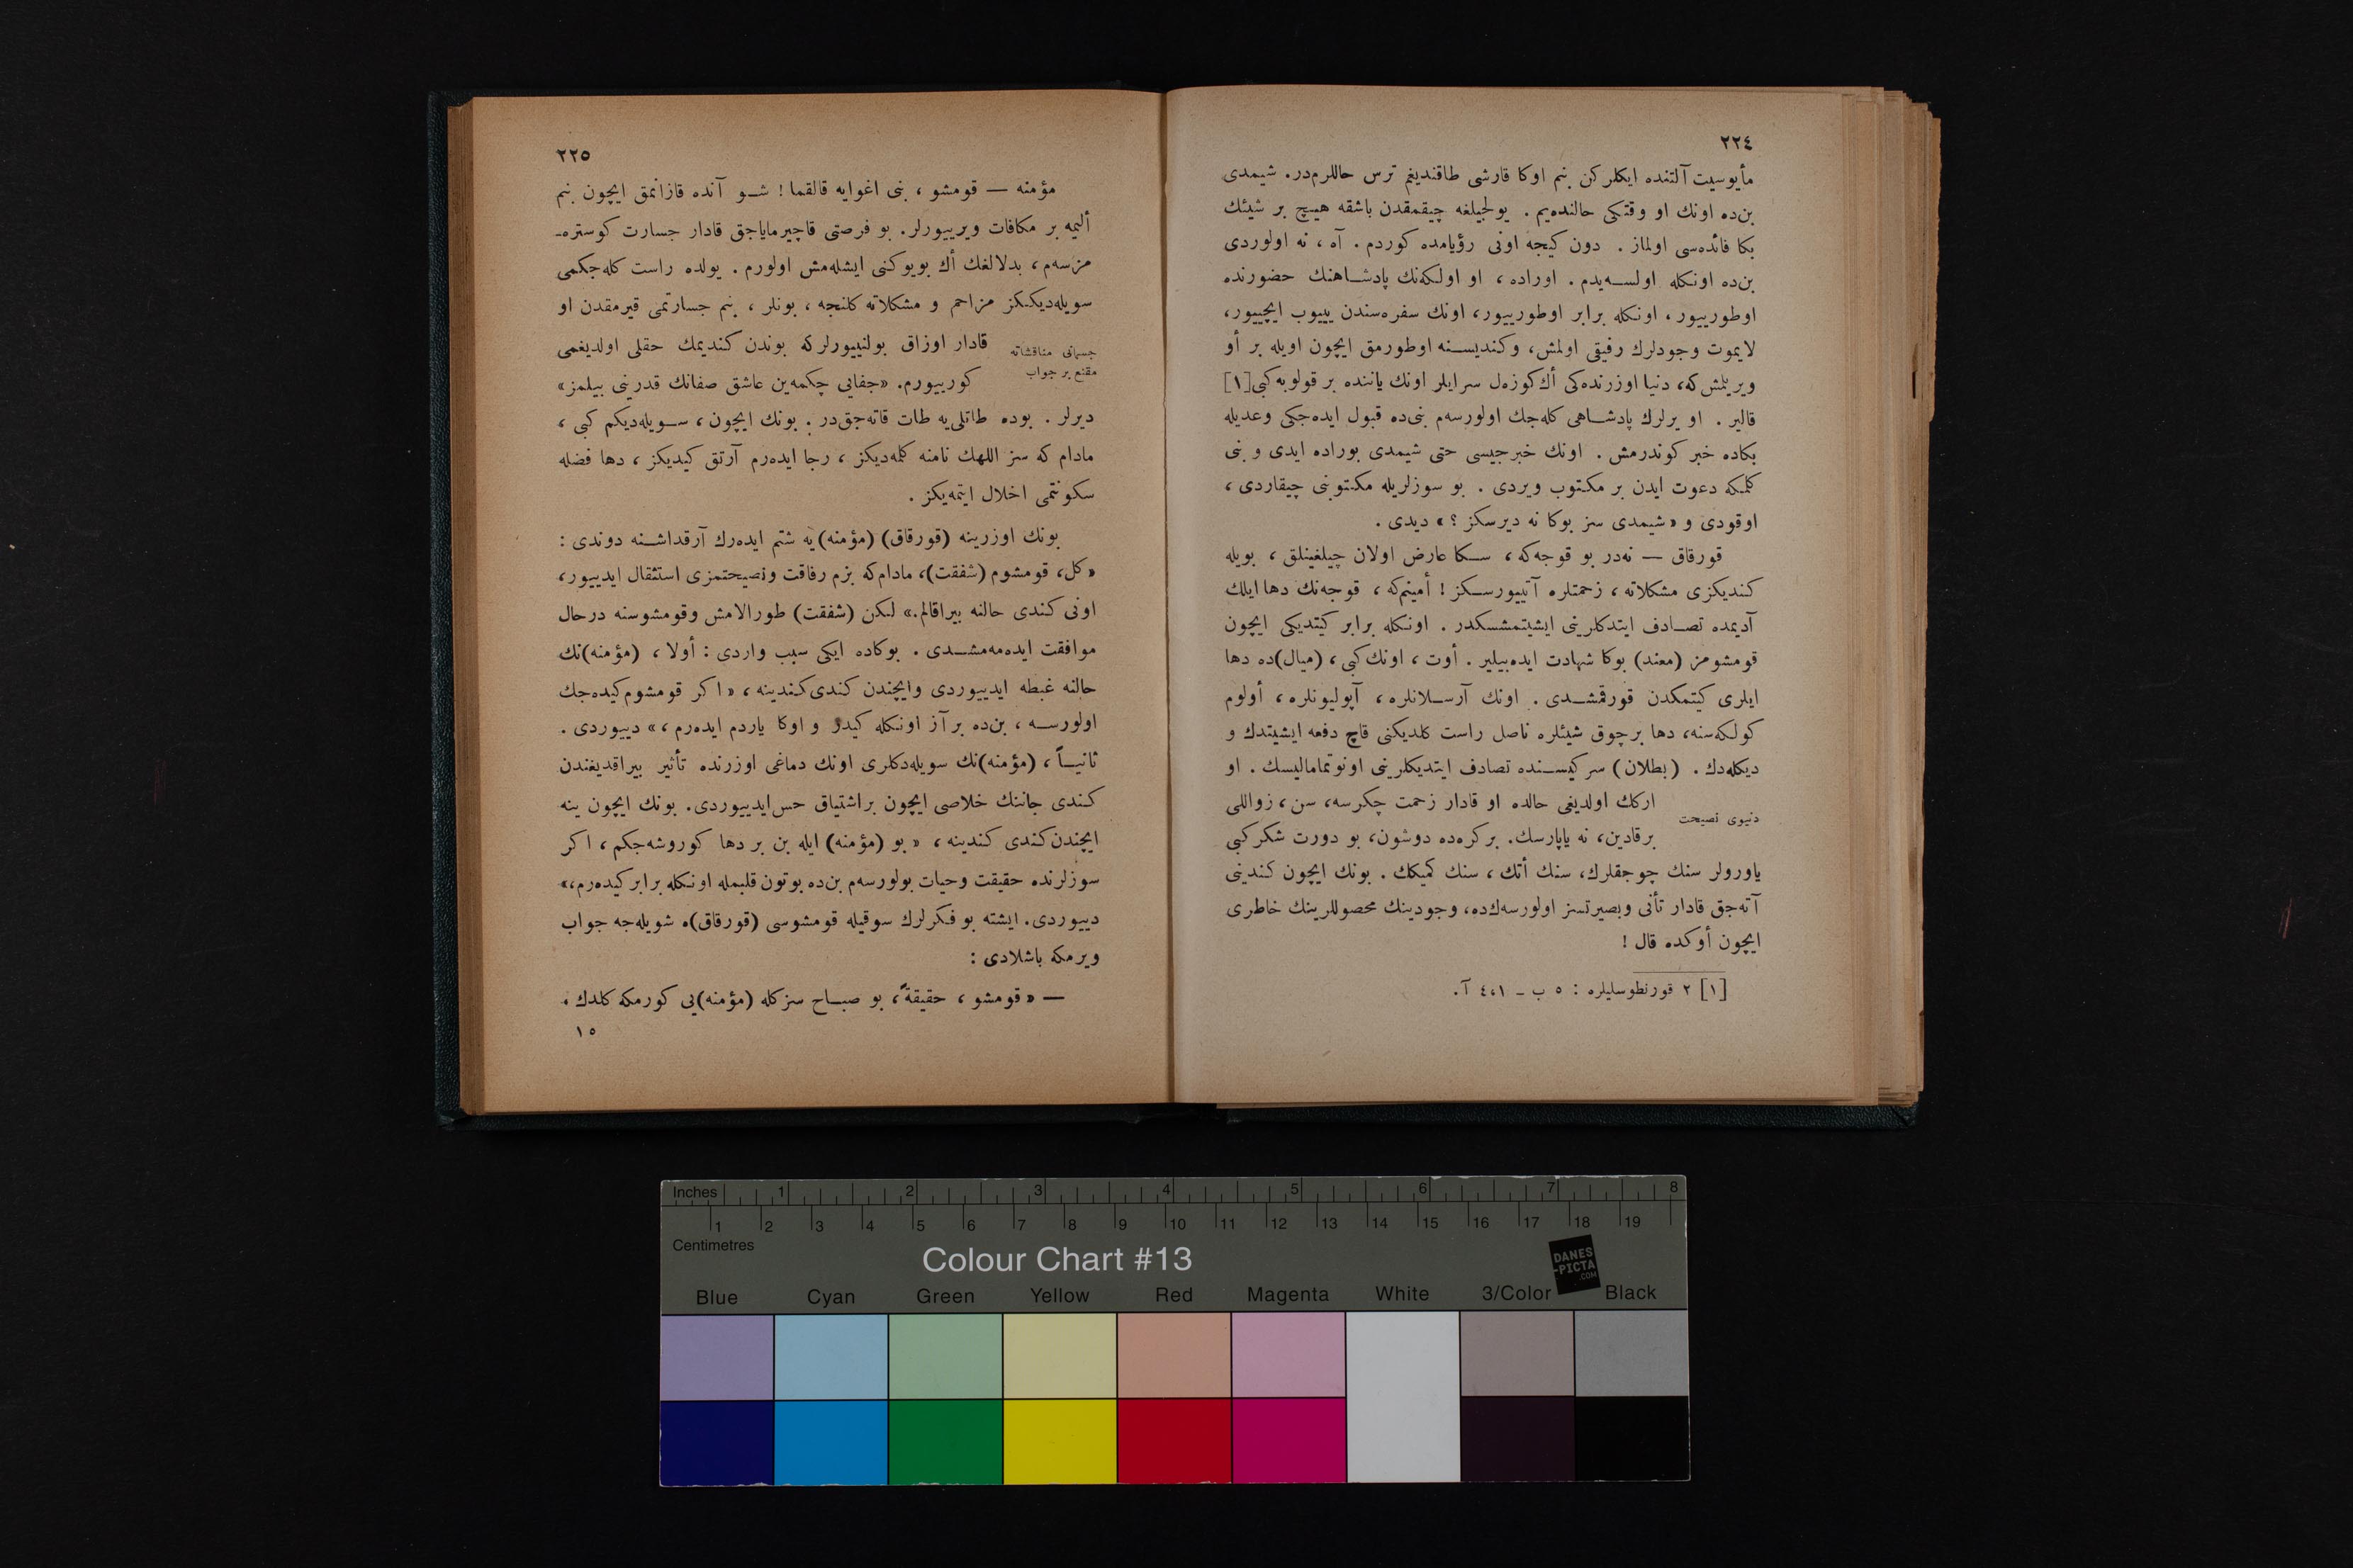 ٢٢٤
مأیوسیت آلتنده ایکلرکن بنم اوکا قارشی طاقندیغم ترس حاللرم‌در. شیمدی
بن‌ده اونك او وقتکی حالنده‌یم. یولجیلغه چیقمقدن باشقه هیچ بر شیئك
بکا فائده‌سی اولماز. دون کیجه اونی رؤیامده کوردم. آه، نه اولوردی
بن‌ده اونکله اولسه‌یدم. اوراده، او اولکه‌نك پادشاهنك حضورنده
اوطورییور، اونکله برابر اوطورییور، اونك سفره‌سندن ییوب ایچییور،
لایموت وجودلرك رفیقی اولمش، وکندیسنه اوطورمق ایچون اویله بر أو
ویریلمش‌که، دنیا اوزرنده‌کی أك‌کوزه‌ل سرایلر اونك یاننده بر قولوبه‌کبی[١]
قالیر. او یرلرك پادشاهی کله‌جك اولورسه‌م بنی‌ده قبول ایده‌جکی وعدیله
بکاده خبر کوندرمش. اونك خبرجیسی حتی شیمدی بوراده ایدی و بنی
کلمکه دعوت ایدن بر مکتوب ویردی. بو سوزلریله مکتوبنی چیقاردی،
اوقودی و «شیمدی سز بوکا نه دیرسکز؟» دیدی.
قورقاق — نه‌در بو قوجه‌که، سکا عارض اولان چیلغینلق، بویله
کندیکزی مشکلاته، زحمتلره آتییورسکز! أمینم‌که، قوجه‌نك دها ایلك
آدیمده تصادف ایتدکلرینی ایشیتمشسکدر. اونکله برابر کیتدیکی ایچون
قومشومز (معند) بوکا شهادت ایده‌بیلیر. أوت، اونك‌کبی، (میال)ده دها
ایلری کیتمکدن قورقمشدی. اونك آرسلانلره، آپولیونلره، أولوم
کولکه‌سنه، دها برچوق شیئلره ناصل راست کلدیکنی قاچ دفعه ایشیتدك و
دیکله‌دك. (بطلان) سرکیسنده تصادف ایتدیکلرینی اونوتمامالیسك. او
ارکك اولدیغی حالده او قادار زحمت چکرسه، سن، زواللی
دنیوی نصیحت
برقادین، نه یاپارسك. برکره‌ده دوشون، بو دورت شکرکبی
یاورولر سنك چوجقلرك، سنك أتك، سنك کمیکك. بونك ایچون کندینی
آته‌جق قادار تأنی وبصیرتسز اولورسه‌ك‌ده، وجودینك محصوللرینك خاطری
ایچون أوکده قال!
[١] ٢ قورنطوسلیلره: ٥ ب ـ ٤،١ آ.
٢٢٥
مؤمنه — قومشو، بنی اغوایه قالقما! شو آنده قازانمق ایچون بنم
ألیمه بر مکافات ویرییورلر. بو فرصتی قاچیرمایاجق قادار جسارت کوستره‌ـ
مزسه‌م، بدلالغك أك بویوکنی ایشله‌مش اولورم. یولده راست کله‌جکمی
سویله‌دیککز مزاحم و مشکلاته کلنجه، بونلر، بنم جسارتمی قیرمقدن او
قادار اوزاق بولنییورلرکه بوندن کندیمك حقلی اولدیغمی
جسمانی مناقشاته
مقنع بر جواب
کورییورم. «جفایی چکمه‌ین عاشق صفانك قدرینی بیلمز»
دیرلر. بوده طاتلی‌یه طات قاته‌جق‌در. بونك ایچون، سویله‌دیکم کبی،
مادام که سز اللهك نامنه کلمه‌دیکز، رجا ایده‌رم آرتق کیدیکز، دها فضله
سکونتمی اخلال ایتمه‌یکز.
بونك اوزرینه (قورقاق) (مؤمنه)یه شتم ایده‌رك آرقداشنه دوندی:
«کل، قومشوم (شفقت)، مادام‌که بزم رفاقت ونصیحتمزی استثقال ایدییور،
اونی کندی حالنه بیراقالم.» لکن (شفقت) طورالامش وقومشوسنه درحال
موافقت ایده‌مه‌مشدی. بوکاده ایکی سبب واردی: أولا، (مؤمنه)نك
حالنه غبطه ایدییوردی وایچندن کندی‌کندینه، «اکر قومشوم‌کیده‌جك
اولورسه، بن‌ده برآز اونکله کیدر و اوکا یاردم ایده‌رم،» دییوردی.
ثانیاً، (مؤمنه)نك سویله‌دکلری اونك دماغی اوزرنده تأثیر بیراقدیغندن
کندی جاننك خلاصی ایچون براشتیاق حس‌ایدییوردی. بونك ایچون ینه
ایچندن‌کندی کندینه، «بو (مؤمنه) ایله بن بر دها کوروشه‌جکم، اکر
سوزلرنده حقیقت وحیات بولورسه‌م بن‌ده بوتون قلبمله اونکله برابرکیده‌رم،»
دییوردی. ایشته بو فکرلرك سوقیله قومشوسی (قورقاق)ه شویله‌جه جواب
ویرمکه باشلادی:
— «قومشو، حقیقةً، بو صباح سزکله (مؤمنه)یی کورمکه کلدك،
١٥
Inches 1 2 3 4 5 6 7 8
1 2 3 4 5 6 7 8 9 10 11 12 13 14 15 16 17 18 19
Centimetres
Colour Chart #13
DANES
-PICTA
.COM
Blue Cyan Green Yellow Red Magenta White 3/Color Black